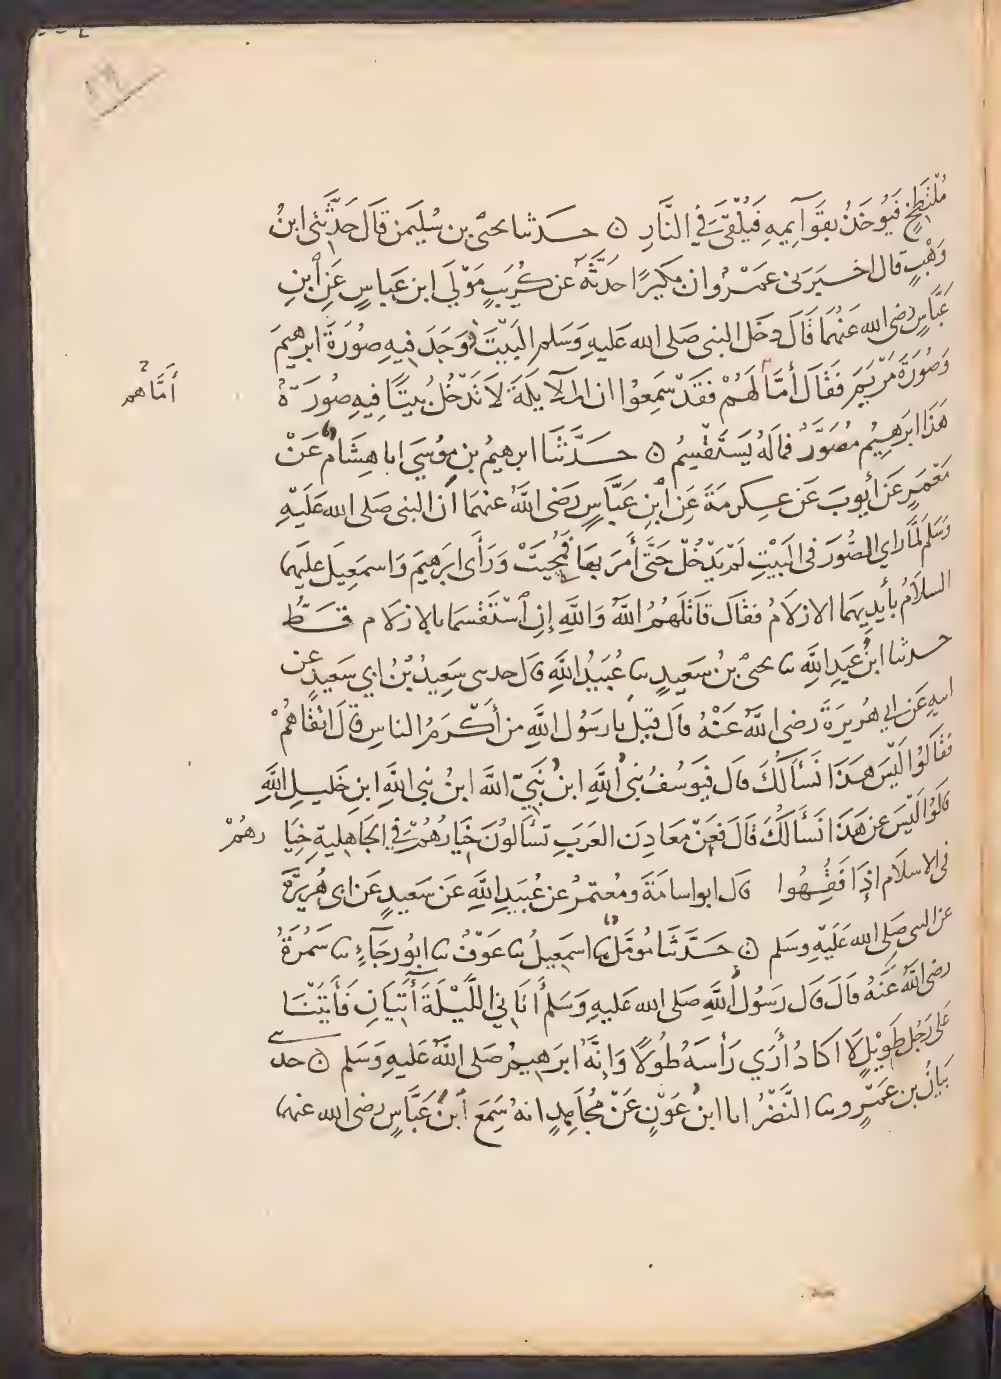 مُلْتَطِخٍ فَيُوخَذُ بقَوَآيمِهِ فَيُلْقَىَ فِي النَّارِ ۞ حدثنا يحيى بن سُلَيمن قَالَ حَدَّثَنى ابنُ
وَهْبٍ قال اخبرنى عمْرُو ان بُكَيرًا حَدَّثَهُ عن كُرَيبٍ مَوْلَى ابن عَباسٍ عَنِ ابنِ
عَبَّاسٍ رضى الله عَنْهُمَا قَالَ دخَلَ النبى صَلى الله عَليهِ وَسَلم البَيْتَ وَجَدَ فيهِ صُورَةَ ابرهيمَ
وَصُورَةَ مَرْيَمَ فَقَالَ أَمَا لَهُمْ فقَدْ سَمِعُوا ان الملآيكَةَ لَا تَدْخُلُ بَيتًا فِيهِ صُورَةٌ
أمَّا هم
هَذَا ابرَهيِمُ مُصَوَّرٌ فمَا لَهُ يَسْتَقْسِمُ ۞ حَدَّثَنَا ابرهيمُ بن مُوْسَى انا هِشَام عَنْ
مَعْمَرٍ عَن أيوبَ عَن عِكرمَةَ عَنِ ابْنِ عَبَّاسٍ رَضى اللهُ عنهمَا أن النبى صَلى الله عَلَيْهِ
وَسَلم لمَّا راى الصُّوَرَ فى البَيْتِ لَمْ يَدْخُلْ حَتَّى أمَرَ بهَا فمُحِيَتْ وَرَأَى ابرَهيمَ وَاسمَعِيلَ عليَهِمَا
السلَامُ بأيدِيهمَا الازلَامُ فقَالَ قَاتَلَهُمُ اللهُ وَاللهِ إنِ اسْتَقْسَمَا بالازلَام قَطُّ
حدثنا ابنُ عَبدِ اللهِ نا يحيىَ بنُ سَعِيدٍ نا عُبَيدُ اللهِ قَال حدثنى سَعِيدُ بْنُ ابي سَعِيدٍ عن
ابيهِ عَن ابي هُريرَةَ رَضى اللهُ عَنْهُ قالَ قيلَ يا رَسُول اللهِ من أكْرَمُ الناسِ قالَ اتْقَاهُمْ
فَقَالوُا لَيْسَ عن هَذَا نَسْأَلُكَ قال فيَوسُفُ نبىُ اللهِ ابنُ نَبِيّ اللهِ ابنُ نبى اللهِ ابنِ خَليلِ اللهِ
قَالوُا لَيْسَ عن هَذَا نَسْأَلُكَ قَالَ فَعَنْ مَعَادِنِ العَرَبِ تسْألونَ خيَارُهُمْ فِي الجَاهِليةِ خيَارهُمْ
فى الاسلَام إذَا فَقُهُوا قال ابو اسامَةَ ومُعتمرٌ عن عُبَيدِ اللهِ عَن سَعِيدٍ عَن ابى هُريرَةَ
عَن النبى صَلى الله عَلَيْهِ وسَلم ۞ حَدَّثَنَا مُومَلٌ نا اسمَعِيلُ نا عَوْفٌ نا ابوُ رجَآءٍ نا سَمُرَةُ
رضى اللهُ عَنهُ قَالَ قَال رَسُولُ اللهِ صَلى الله عَليهِ وَسَلم أَتَانِي اللَّيْلَةَ آتِيَانِ فَأَتَيْنَا
عَلى رَجُل طَوِيْلٍ لَا اكَادُ أَرَي رَأسَهُ طُولًا وَانِهَّ ابرَهيمُ صَلى اللهُ عَليهِ وَسَلم ۞ حدثنى
بَيَانُ بن عَمْرٍو نا النَّضْرُ انا ابنُ عَوْنٍ عَنْ مُجَاهِدٍ انهُ سَمِعَ ابنَ عَبَّاسٍ رضى الله عنهمَا